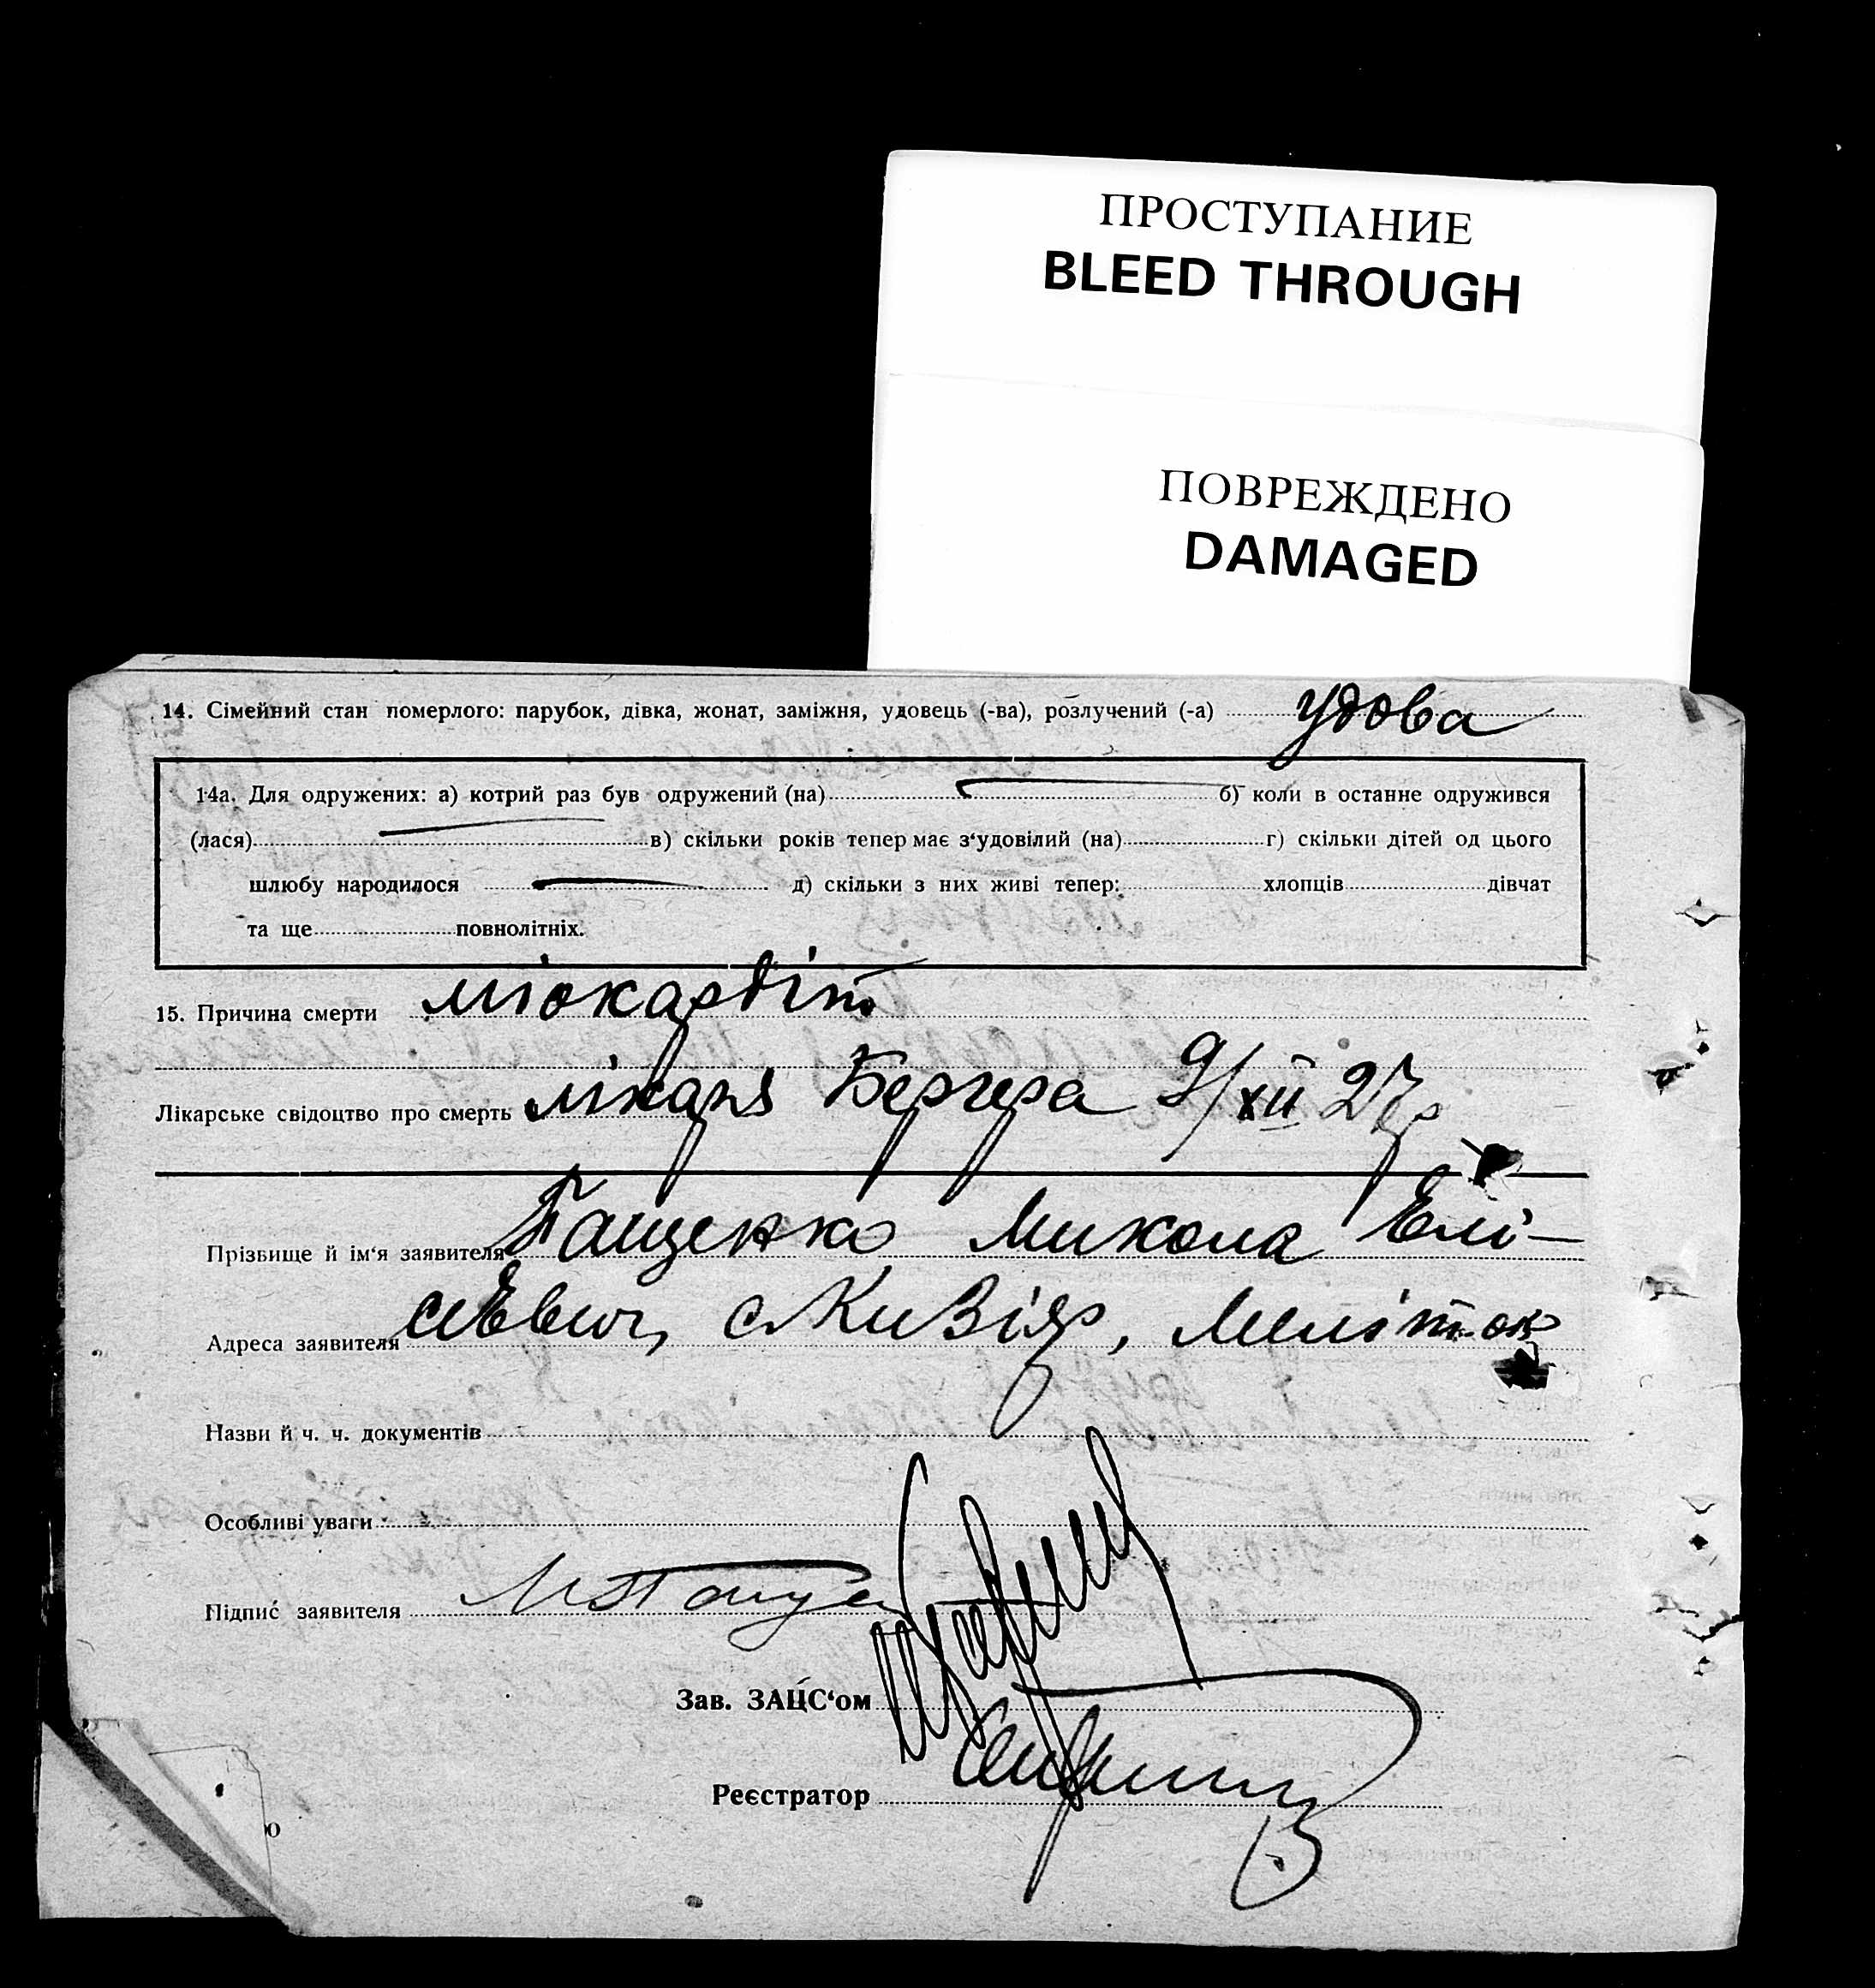 ПРОСТУПАНИЕ
BLEED THROUGH
ПОВРЕЖДЕНО
DAMAGED
14. Сімейний стан померлого: парубок, дівка, жонат, заміжня, удовець (-ва), розлучений (-а) удова
14а. Для одружених: а) котрий раз був одружений (на) б) коли в останнє одружився
(лася) в) скільки років тепер має з‘удовілий (на) г) скільки дітей од цього
шлюбу народилося д) скільки з них живі тепер: хлопців дівчат
та ще повнолітніх.
15. Причина смерти міокардіт
Лікарське свідоцтво про смерть лікаря Бергера 9/XII 27р
Прізвище й ім‘я заявителя Пащенко Микола Елі-
Адреса заявителя сєєвич,
Назви й ч. ч. документів
Особливі уваги
Підпис заявителя
Зав. ЗАЦС‘ом
Реєстратор